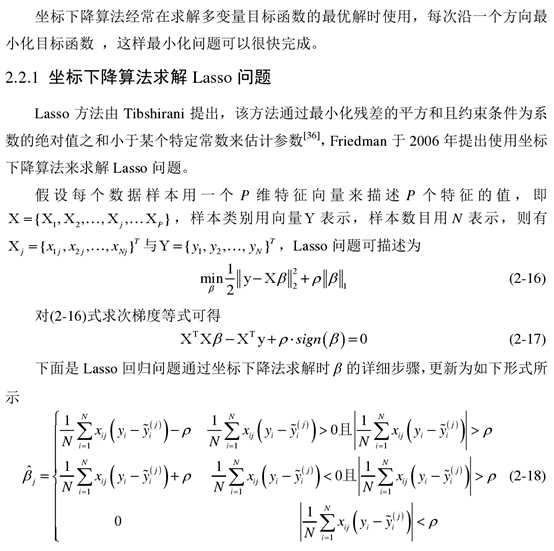 坐标下降算法经常在求解多变量目标函数的最优解时使用，每次沿一个方向最
小化目标函数 ，这样最小化问题可以很快完成。
2.2.1 坐标下降算法求解 Lasso 问题
Lasso 方法由 Tibshirani 提出，该方法通过最小化残差的平方和且约束条件为系
数的绝对值之和小于某个特定常数来估计参数[36]，Friedman 于 2006 年提出使用坐标
下降算法来求解 Lasso 问题。
假设每个数据样本用一个 P 维特征向量来描述 P 个特征的值，即
X = {X₁, X₂, …, X_j, … X_P}，样本类别用向量 Y 表示，样本数目用 N 表示，则有
X_j = {x_{1j}, x_{2j}, …, x_{Nj}}^T 与 Y = {y₁, y₂, …, y_N}^T，Lasso 问题可描述为
min_β 1/2 ‖y − Xβ‖₂² + ρ‖β‖₁ (2-16)
对(2-16)式求次梯度等式可得
X^T Xβ − X^T y + ρ·sign(β) = 0 (2-17)
下面是 Lasso 回归问题通过坐标下降法求解时 β 的详细步骤，更新为如下形式所
示
1/N ∑_{i=1}^N x_{ij}(y_i − ỹ_i^{(j)}) − ρ 1/N ∑_{i=1}^N x_{ij}(y_i − ỹ_i^{(j)}) > 0且|1/N ∑_{i=1}^N x_{ij}(y_i − ỹ_i^{(j)})| > ρ
β̂_j = { 1/N ∑_{i=1}^N x_{ij}(y_i − ỹ_i^{(j)}) + ρ 1/N ∑_{i=1}^N x_{ij}(y_i − ỹ_i^{(j)}) < 0且|1/N ∑_{i=1}^N x_{ij}(y_i − ỹ_i^{(j)})| > ρ (2-18)
0 |1/N ∑_{i=1}^N x_{ij}(y_i − ỹ_i^{(j)})| < ρ